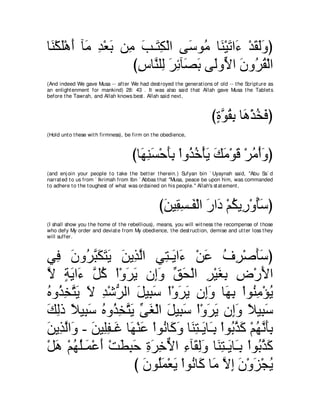 (وَلَقَدْ ءَاتَيْنَا مُوسَى الْكِتَـبَ مِن بَعْدِ مَآ أَهْلَكْنَا
الْقُرُونَ الاٍّولَى بَصَآئِرَ لِلنَّاسِ)
(And indeed We gave Musa -- after We had destroyed the generations of old -- the Scripture as
an enlightenment for mankind) 28: 43 . It was also said that Allah gave Musa the Tablets
before the Tawrah, and Allah knows best. Allah said next,
(فَخُذْهَا بِقُوَّةٍ)
(Hold unto these with firmness), be firm on the obedience,
(وَأْمُرْ قَوْمَكَ يَأْخُذُواْ بِأَحْسَنِهَا)
(and enjoin your people to take the better therein.) Sufyan bin `Uyaynah said, "Abu Sa`d
narrated to us from `Ikrimah from Ibn `Abbas that "Musa, peace be upon him, was commanded
to adhere to the toughest of what was ordained on his people." Allah's statement,
(سَأُوْرِيكُمْ دَارَ الْفَـسِقِينَ)
(I shall show you the home of the rebellious), means, you will witness the recompense of those
who defy My order and deviate from My obedience, the destruction, demise and utter loss they
will suffer.
(سَأَصْرِفُ عَنْ ءَايَـتِي الَّذِينَ يَتَكَبَّرُونَ فِي
الاٌّرْضِ بِغَيْرِ الْحَقِّ وَإِن يَرَوْاْ كُلَّ ءَايَةٍ لاَّ
يُؤْمِنُواْ بِهَا وَإِن يَرَوْاْ سَبِيلَ الرُّشْدِ لاَ يَتَّخِذُوهُ
سَبِيلاً وَإِن يَرَوْاْ سَبِيلَ الْغَىِّ يَتَّخِذُوهُ سَبِيلاً ذَلِكَ
بِأَنَّهُمْ كَذَّبُواْ بِـَايَـتِنَا وَكَانُواْ عَنْهَا غَـفِلِينَ - وَالَّذِينَ
كَذَّبُواْ بِـَايَـتِنَا وَلِقَآءِ الاٌّخِرَةِ حَبِطَتْ أَعْمَـلُهُمْ هَلْ
يُجْزَوْنَ إِلاَّ مَا كَانُواْ يَعْمَلُونَ )